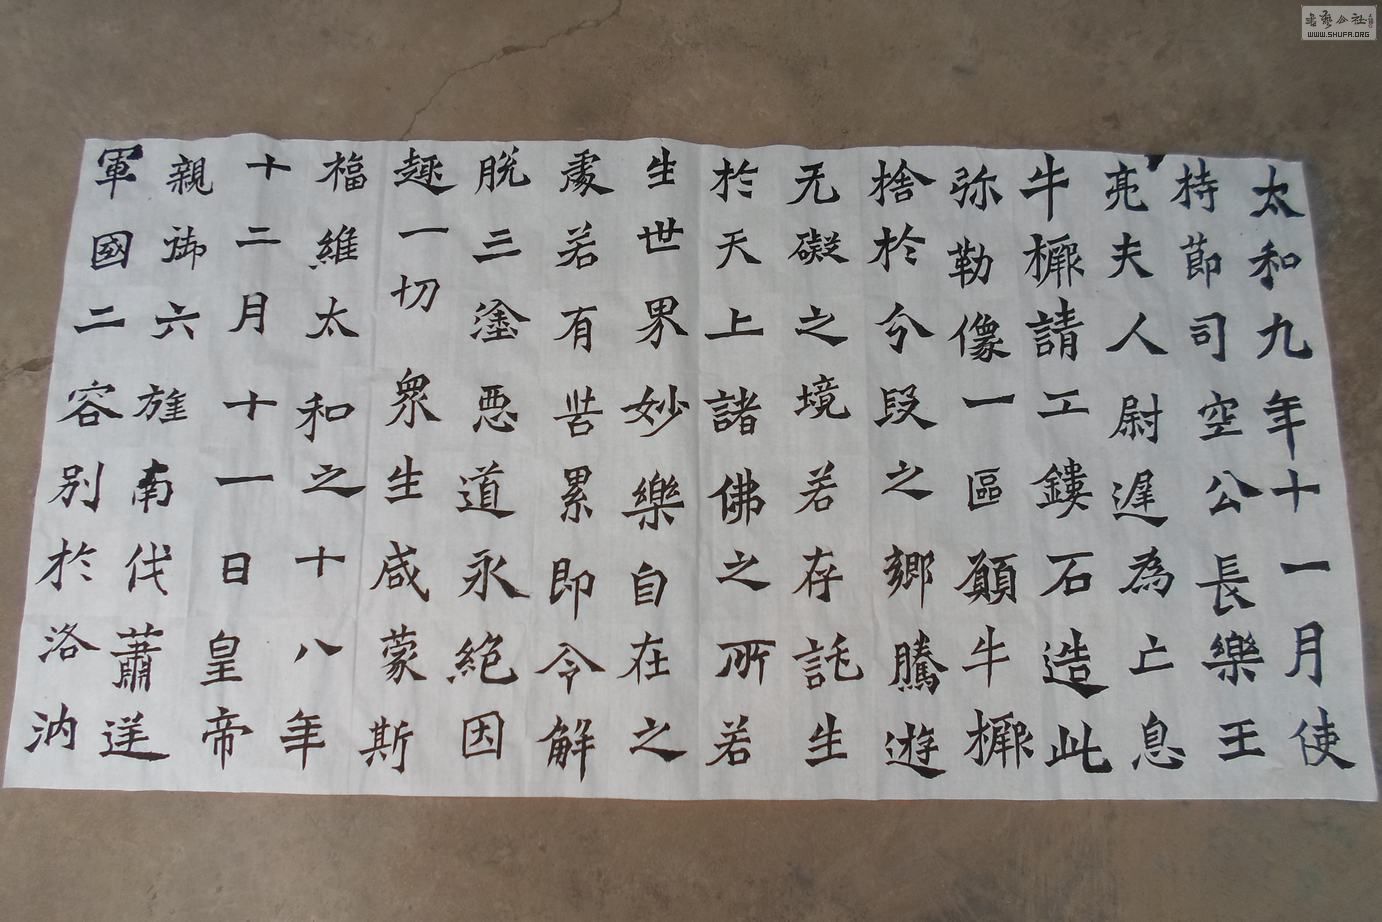 太和九年十一月使
持節司空公長樂王
亮夫人尉遲為亡息
牛橛請工鏤石造此
弥勒像一區願牛橛
捨於分段之鄉騰遊
无礙之境若存託生
於天上諸佛之所若
生世界妙樂自在之
處若有苦累即令解
脫三塗惡道永絕因
趣一切眾生咸蒙斯
福維太和之十八年
十二月十一日皇帝
親御六旌南伐蕭逆
軍國二容別於洛汭
書藝公社
WWW.SHUFA.ORG